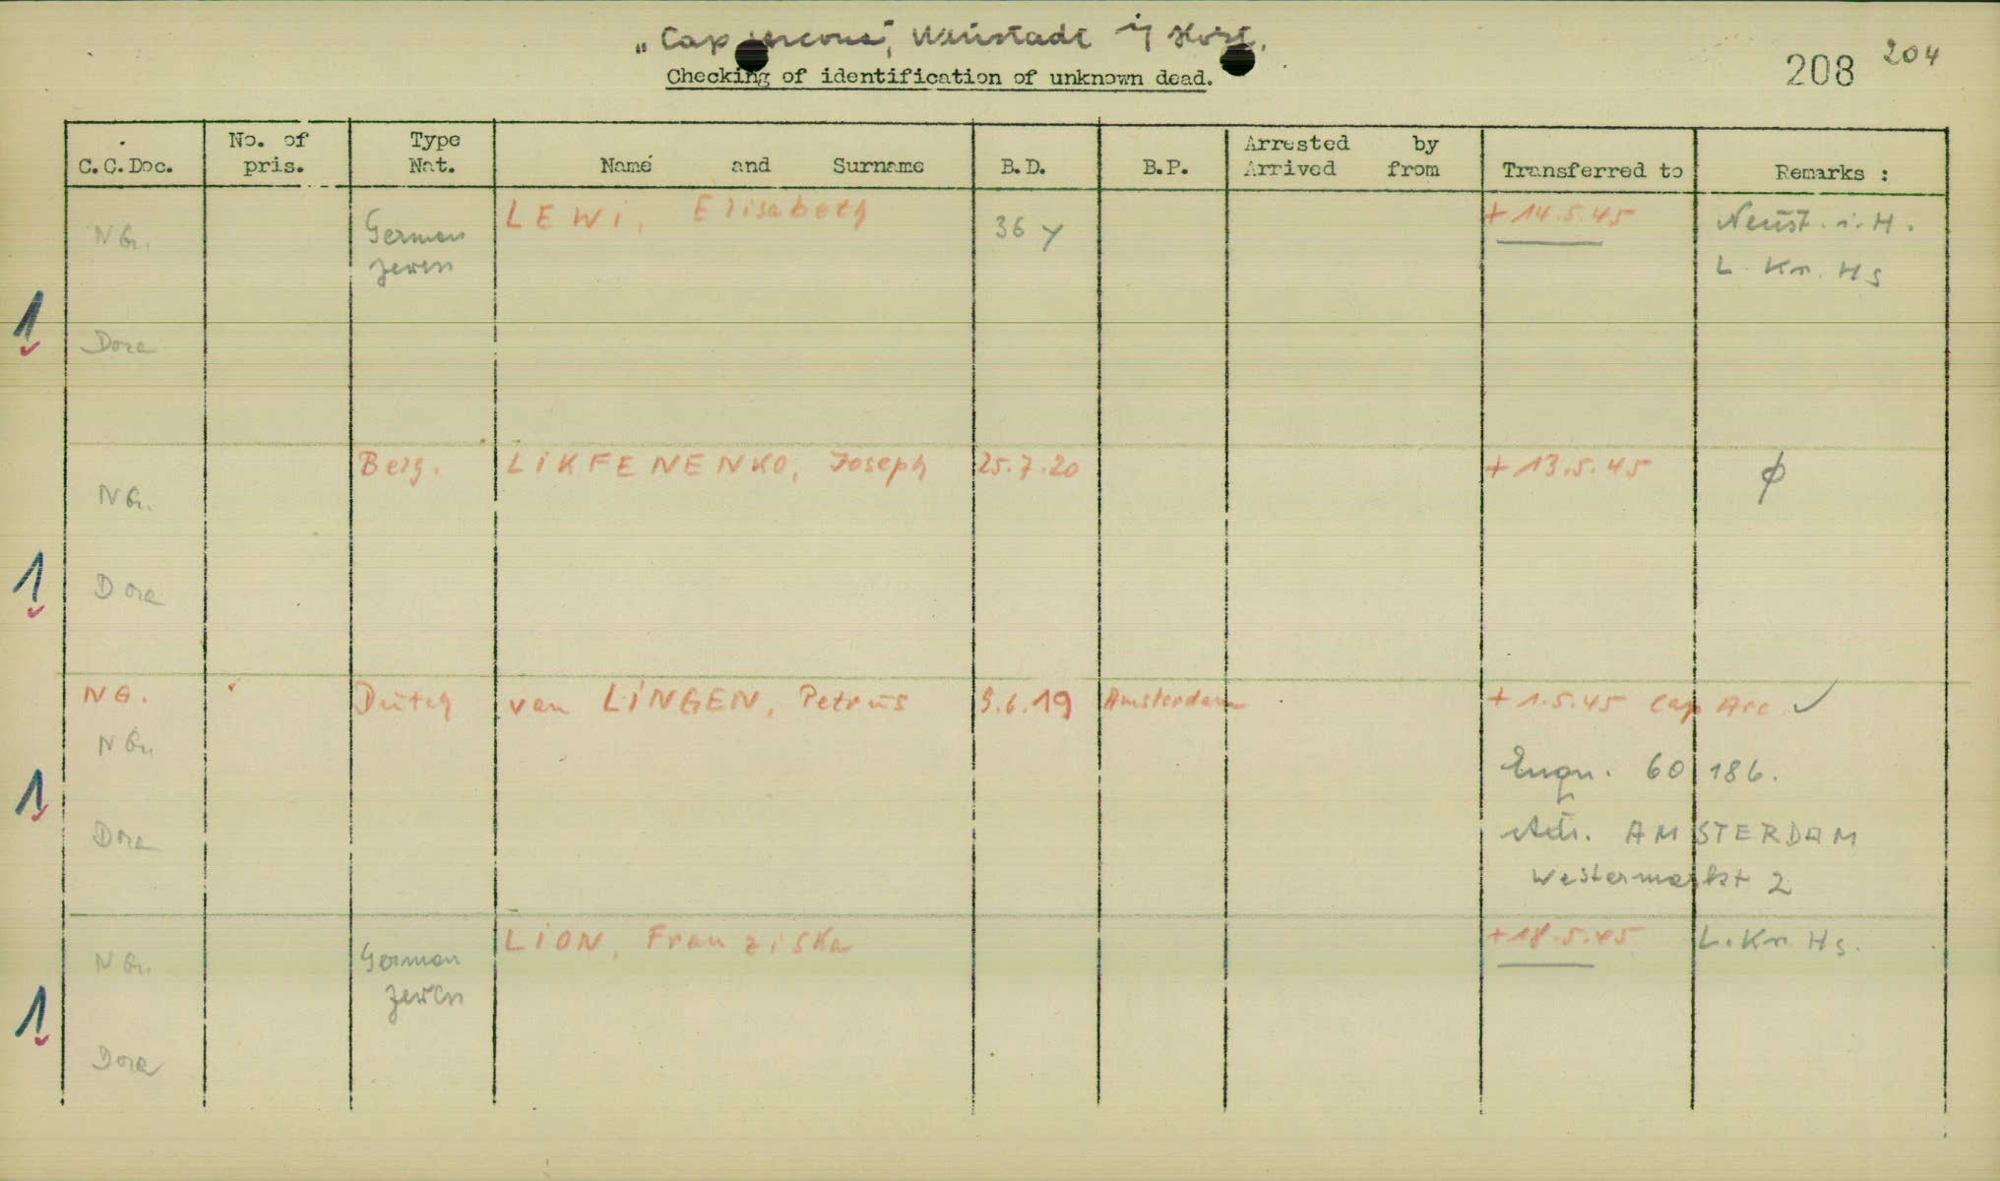 „Cap Arcona", Neustadt i/ Holst.
Checking of identification of unknown dead.
208 204
C.C.Doc. No. of pris. Type Nat. Name and Surname B.D. B.P. Arrested by Arrived from Transferred to Remarks :
LEWI, Elisabeth + 14.5.45 Neust. i. H.
NGr. German 36 y
Jewin L. Kr. Hs
1
Dora
Belg. LIKFENENKO, Joseph 25.7.20 + 13.5.45 ϕ
NGr.
1 Dora
NG. Dutch van LINGEN, Petrus 9.6.19 Amsterdam + 1.5.45 Cap Arc ✓
NGr.
Enqu. 60 186.
1
Dora Adr. AMSTERDAM
Westermarkt 2
LION, Franziska + 18.5.45 L. Kr. Hs.
NGr. German
Jewin
1
Dora